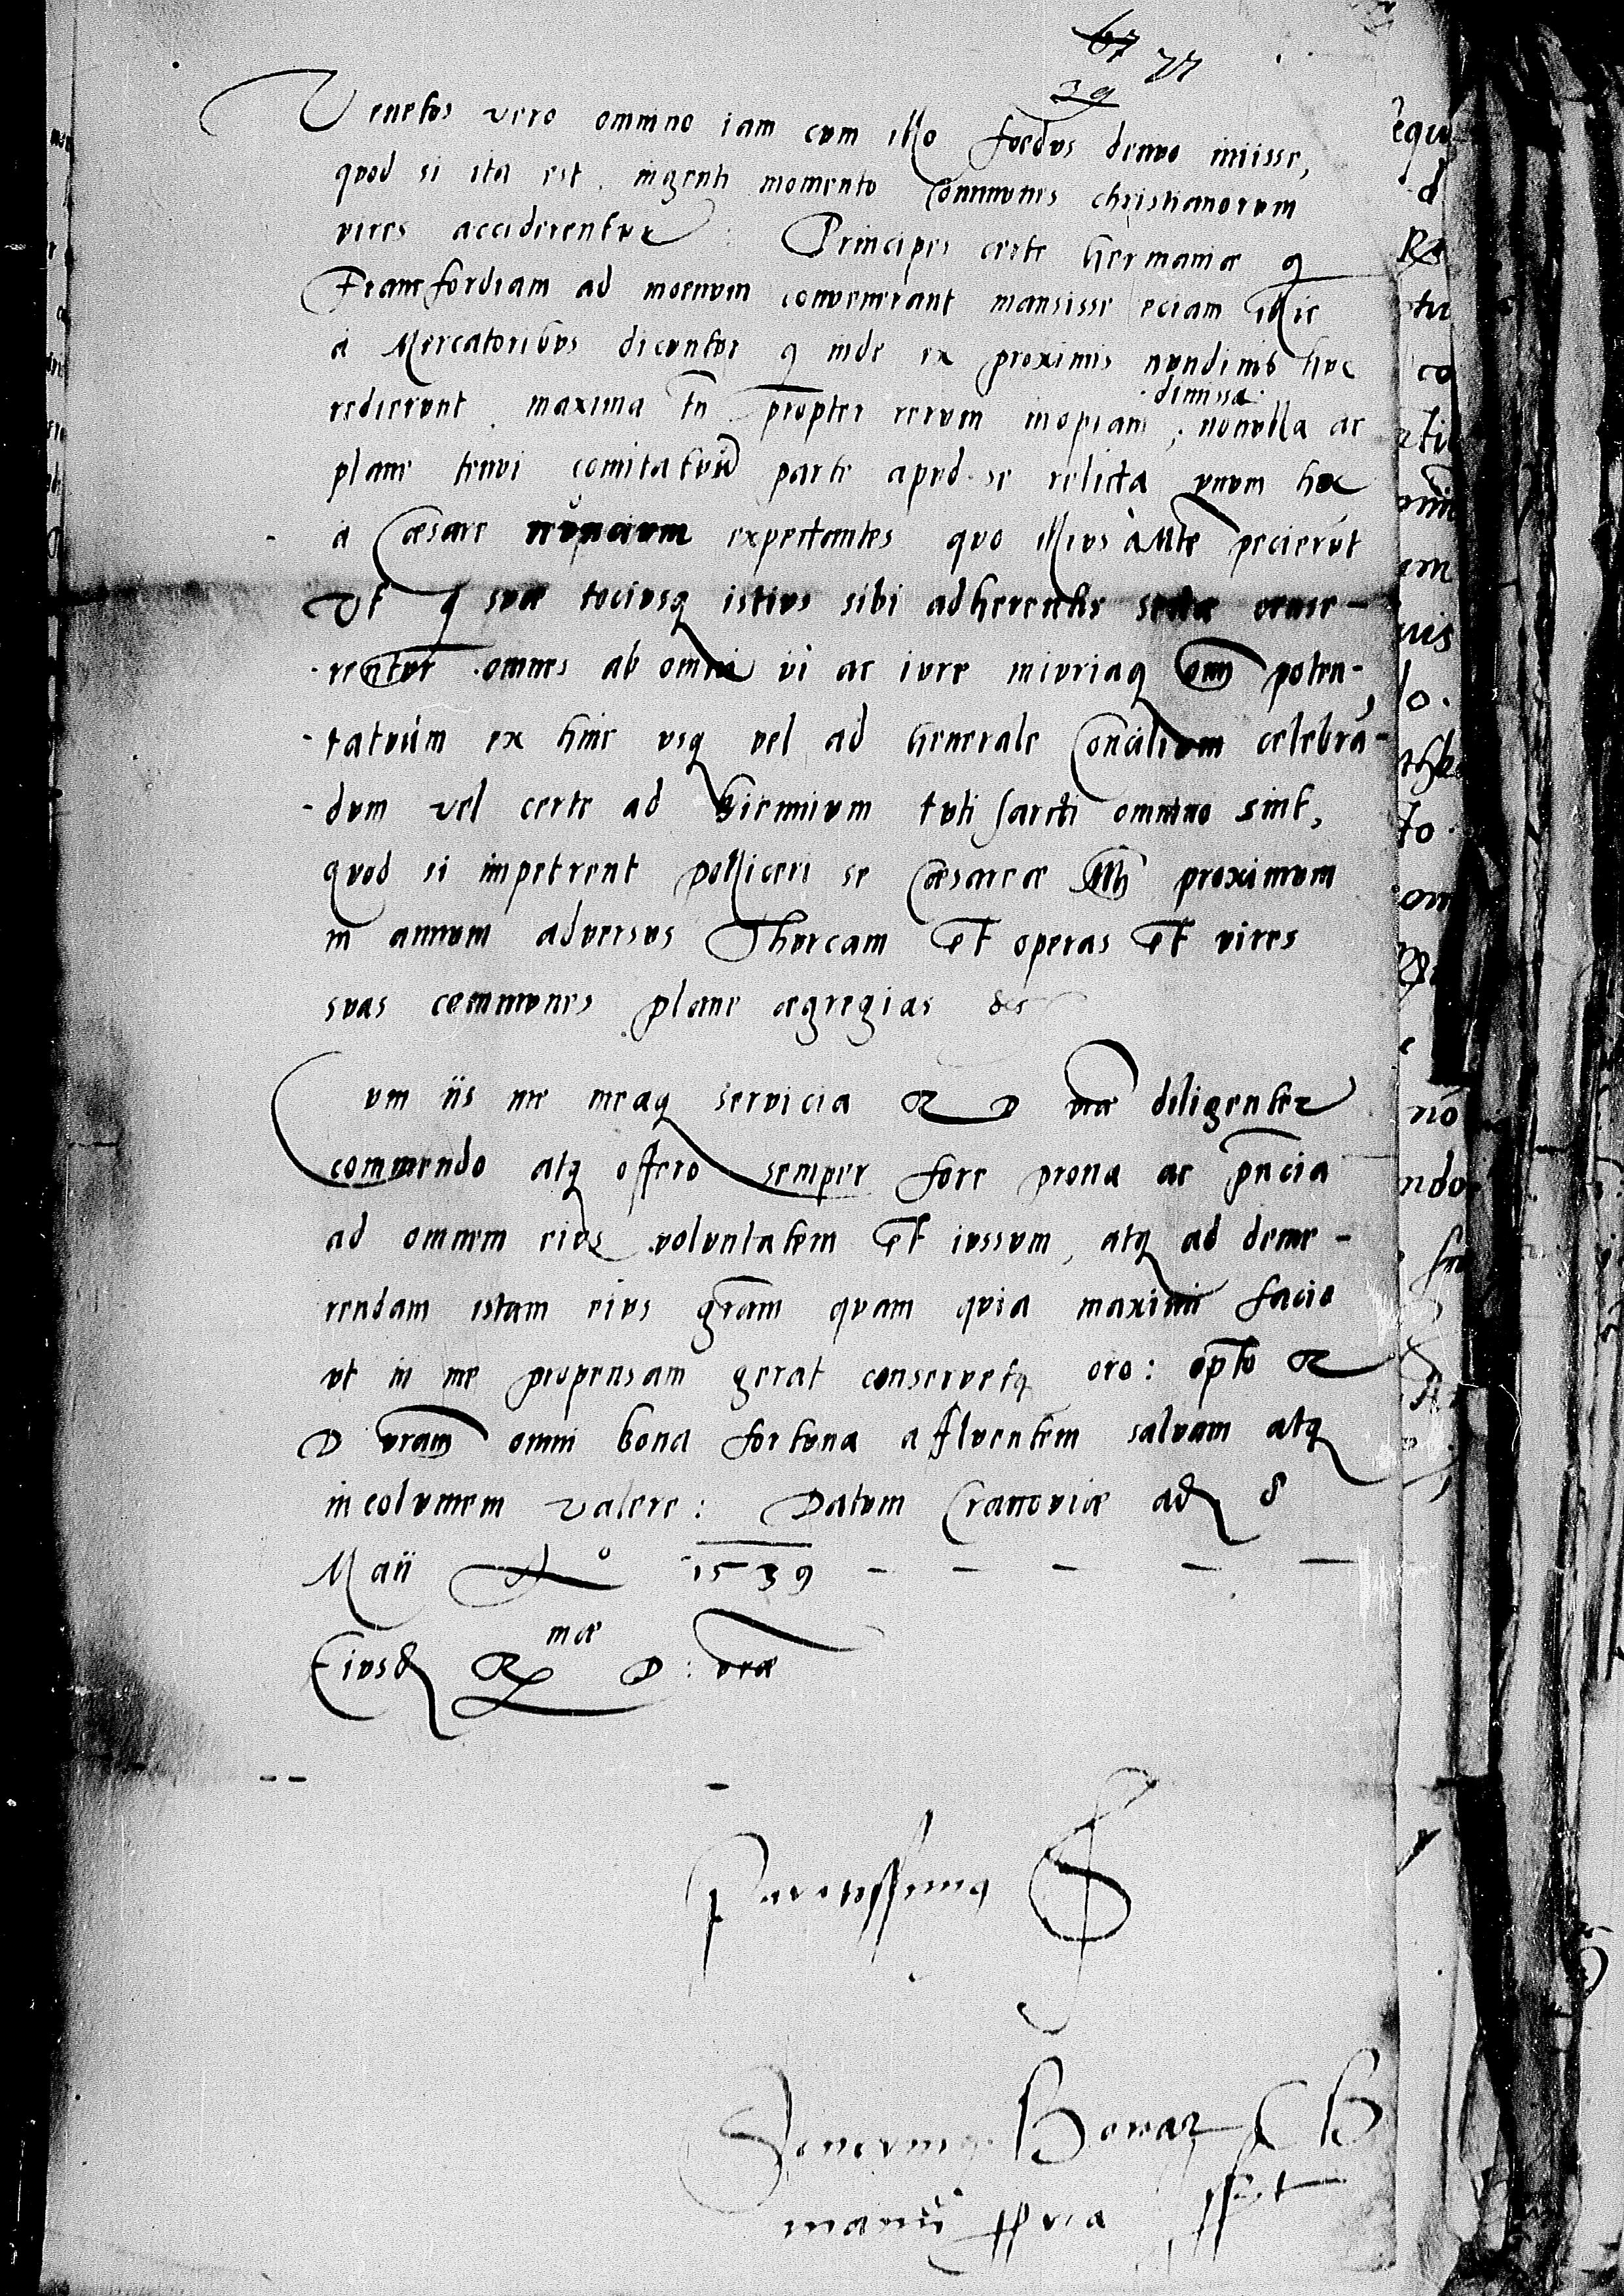 67 77
39
Venetos vero omnino iam cum illo foedus denuo iniisse,
quod si ita est, ingenti momento Communes christianorum
vires acciderentur: Principes certe hermaniae q
Francfordiam ad moenum convenerant mansisse eciam illic
a Mercatoribus dicuntur q inde ex proximis nundinis huc
redierunt maxima tn propter rerum inopiam, dimissa nonulla ac
plane tenui comitatuu parte apud se relicta unum hoc
a Caesare nuncium expectantes quo illius a Mte pecierut
Ut q suae tociusq istius sibi adherentis sectae
rentur omnes ab omni vi ac iure iniuriaq omi poten-
-tatuum ex hinc usq vel ad henerale Concilium celebra-
-dum vel certe ad biennium tuti sarcti omnino sint,
quod si impetrent polliceri se Caesareae Mti proximum
in annum adversus Thurcam et operas et vires
suas communes plane aegregias &c
Cum iis me meaq servicia R D vrae diligenter
commendo atq offero semper fore prona ac
ad omnem eius voluntatem et iussum, atq ad deme-
rendam istam eius gram quam quia maximi facio
ut in me propensam gerat conservetq oro: opto R
D vram omni bona fortuna affluentem salvam atq
incolumem valere: Datum Cracoviae ad 8
Maii Ao 1539 - - - - -
Eiusd Rmae D: vrae
paratissimus S
Severinus Bonar C B
manu ppria sspt